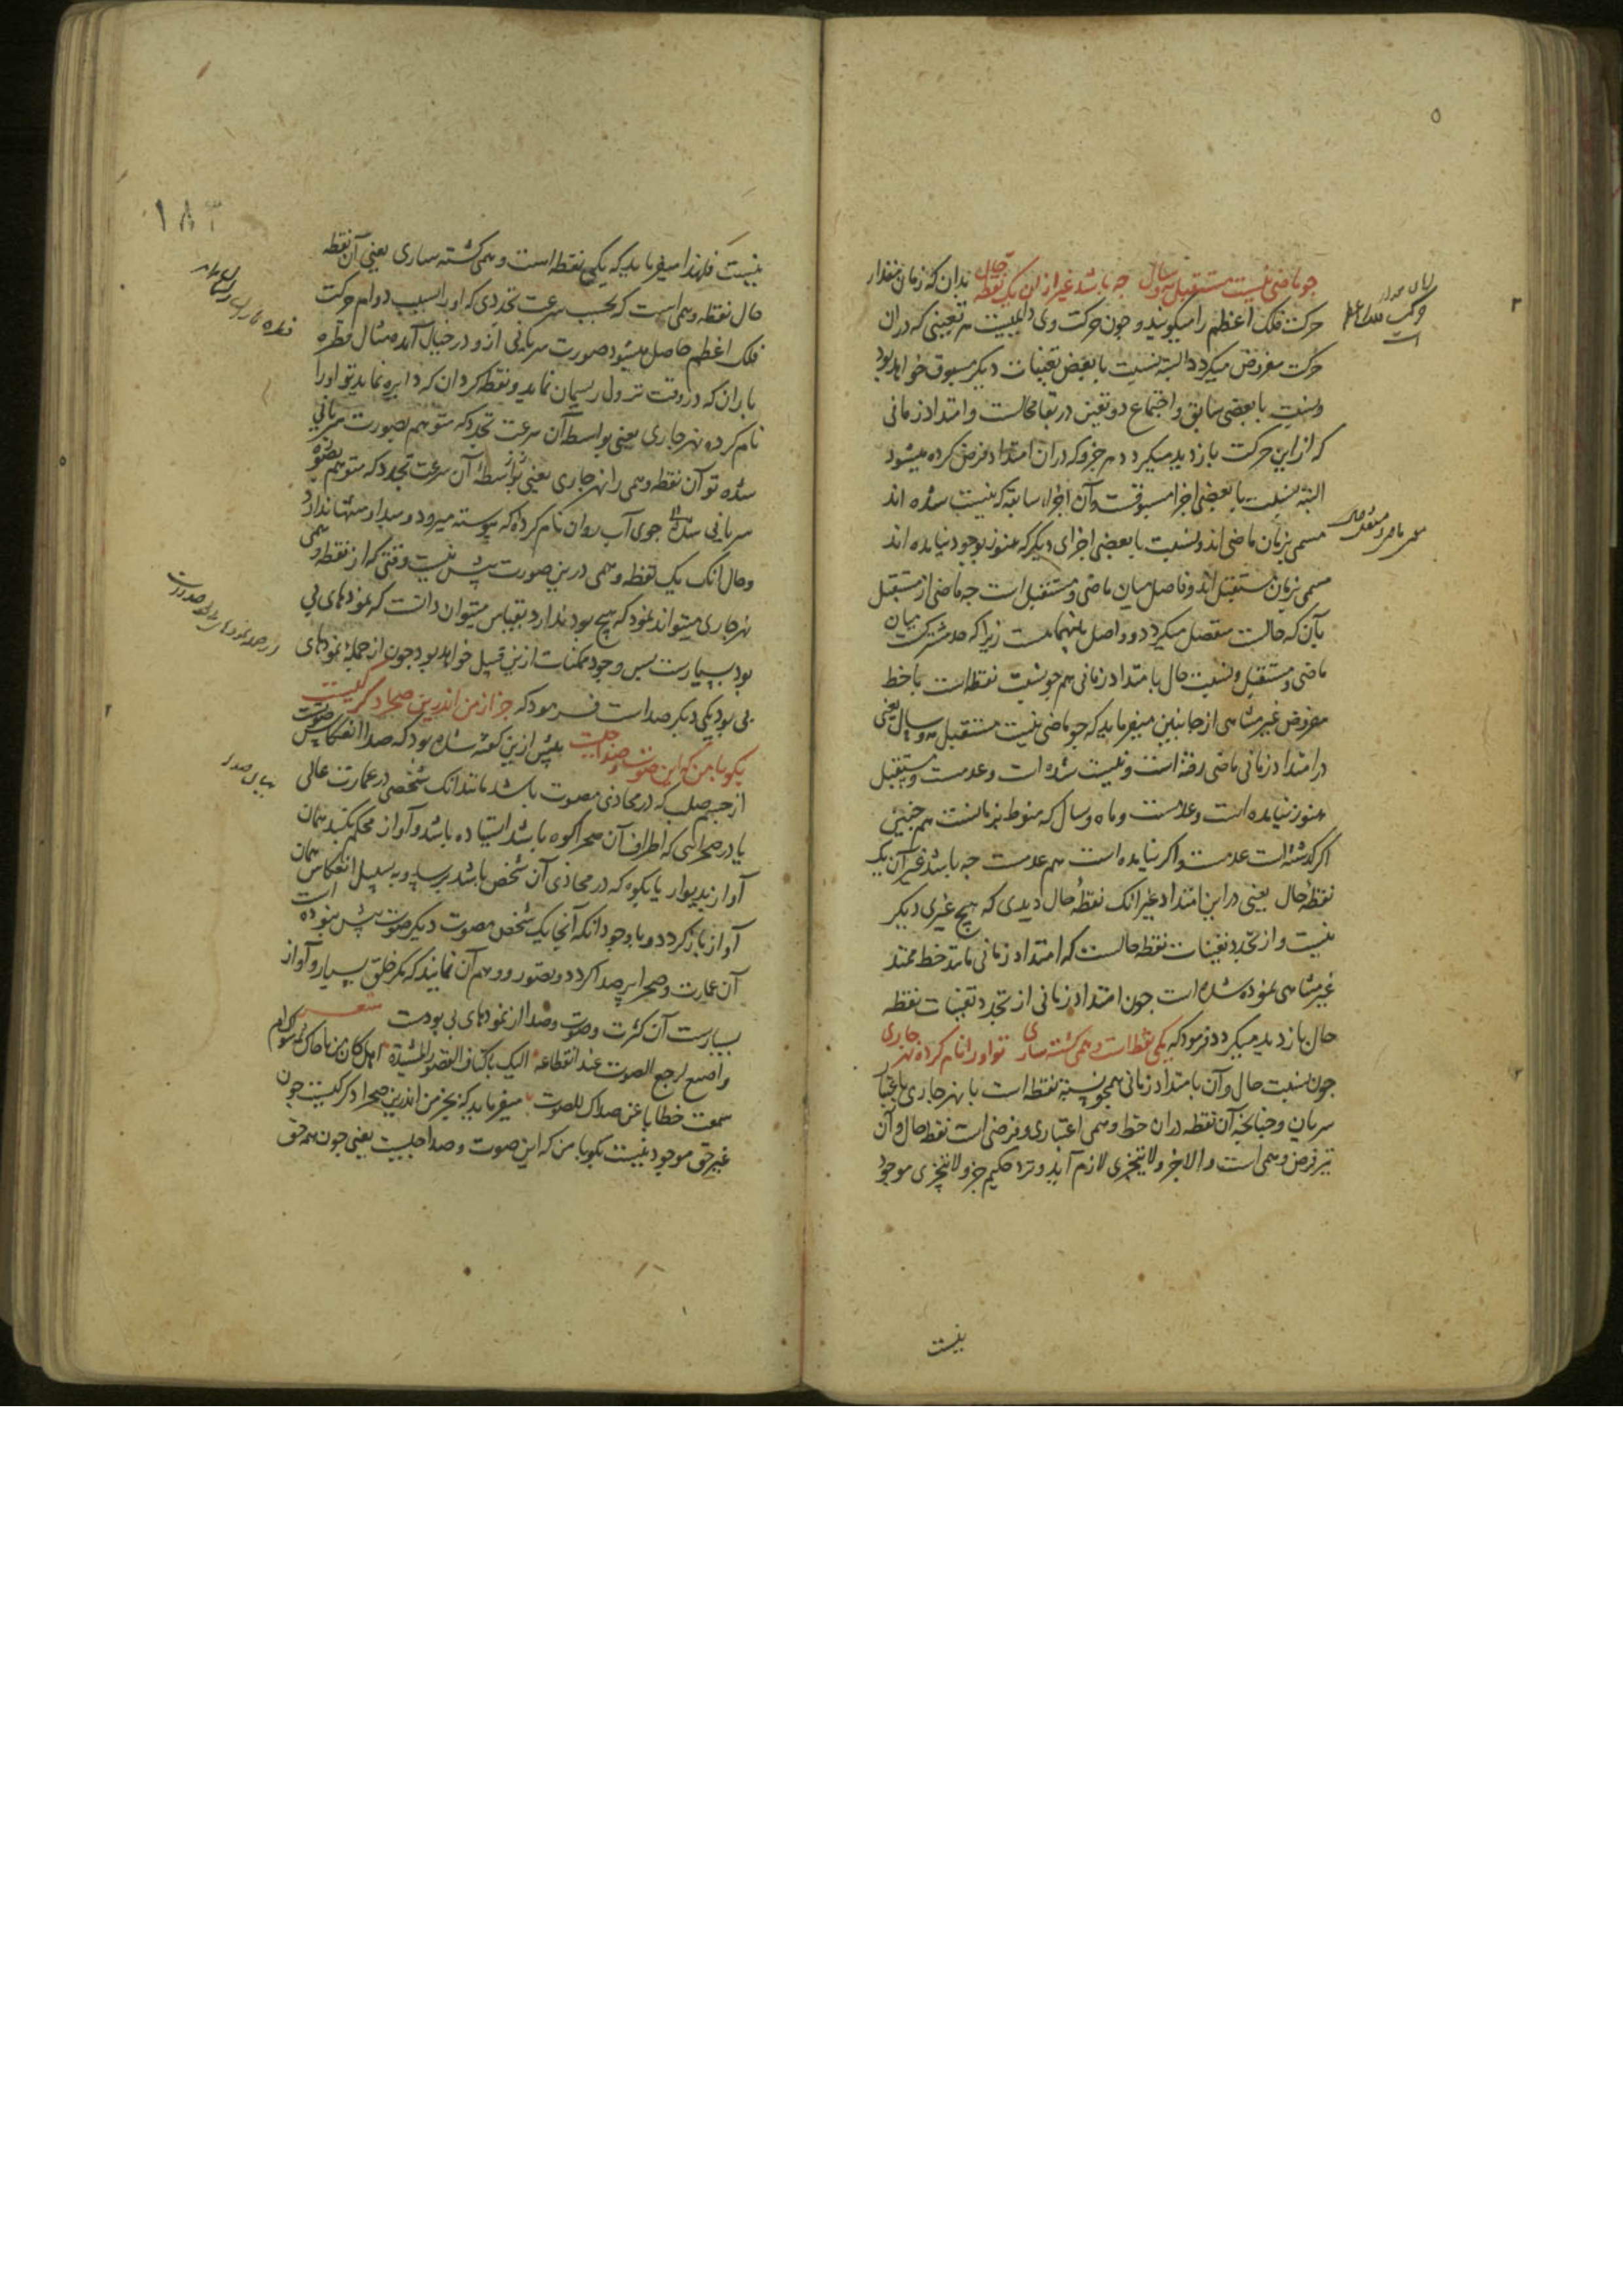 ۵
چو ماضی نیست مستقبل مه و سال چه باشد غیر ازان یک نقطه حال بدان که زمان مقدار
حرکت فلک اعظم را میگویند و چون حرکت وی دایمیست هر تعینی که دران
حرکت مفروض میگردد البته نسبت با بعض تعینات دیگر مسبوق خواهد بود
و نسبت با بعضی سابق و اجتماع دو تعین در بقا محالست و امتداد زمانی
که از این حرکت بازدید میگردد هر جزو که دران امتداد فرض کرده میشود
البته نسبت با بعضی اجزا مسبوقست و آن اجزاء سابقه که نیست شده اند
مسمی بزمان ماضی اند و نسبت با بعضی اجزای دیگر که هنوز بوجود نیامده اند
مسمی بزمان مستقبل اند و فاصل میان ماضی و مستقبل است چه ماضی از مستقبل
بآن که حالست منفصل میگردد و واصل بینهماست زیرا که حد مشترکست میان
ماضی و مستقبل و نسبت حال بامتداد زمانی همچو نسبت نقطه است با خط
مفروض غیر متناهی از جانبین میفرماید که چو ماضی نیست مستقبل مه و سال یعنی
در امتداد زمانی ماضی رفته است و نیست شده است و عدمست و مستقبل
هنوز نیامده است و عدمست و ماه و سال که منوط بزمانست هم چنین
اگر گذشته است عدمست و اگر نیامده است هم عدمست چه باشد غیر آن یک
نقطهٔ حال یعنی در این امتداد غیر انک نقطهٔ حال دیدی که هیچ غیری دیگر
نیست و از تجدد تعینات نقطه حالست که امتداد زمانی مانند خط ممتد
غیر متناهی نموده شده است چون امتداد زمانی از تجدد تعینات نقطه
حال بازدید میگردد فرمود که یکی نقطه است وهمی گشته ساری تو او را نام کرده نهر جاری
چون نسبت حال و آن بامتداد زمانی همچو نسبة نقطه است با نهر جاری باعتبار
سریان و چنانچه آن نقطه دران خط وهمی اعتباری و فرضی است نقطه حال و آن
نیز فرض وهمی است والا جزو لا یتجزی لازم آید و نزد حکیم جزو لا یتجزی موجود
نیست
۱۸۳
نیست فلهذا میفرماید که یکی نقطه است وهمی گشته ساری یعنی آن نقطه
حال نقطه وهمی است که بحسب سرعت تجددی که او را بسبب دوام حرکت
فلک اعظم حاصل میشود صورت سریانی ازو در خیال آمده مثال قطره
باران که در وقت نزول ریسمان نماید و نقطه گردان که دایره نماید تو او را
نام کرده نهر جاری یعنی بواسطه آن سرعت تجدد که متوهم بصورت سریانی
شده تو آن نقطه وهمی را نهر جاری یعنی بواسطهٔ آن سرعت تجدد که متوهم بصورة
سریانی شده جوی آب روان نام کرده که پیوسته میرود و مبدا و منتها ندارد
و حال انک یک نقطه وهمی درین صورت بیش نیست وقتی که از نقطهٔ وهمی
نهر جاری میتواند نمود که هیچ بود ندارد بقیاس میتوان دانست که نمودهای بی
بود بسیارست پس وجود ممکنات ازین قبیل خواهد بود چون از جمله نمودهای
بی بود یکی دیگر صداست فرمود که جز از من اندرین صحرا دگر کیست
بگو با من که این صوت و صدا چیست پیش ازین گفته شده بود که صدا انعکاس صوتست
از جسم صلب که در محاذی مصوت باشد مانند انک شخصی در عمارت عالی
یا در صحرائی که اطراف آن صحرا کوه باشد ایستاده باشد و آواز محکم بکند همان
آواز بدیوار یا بکوه که در محاذی آن شخص باشد برسد و به سبیل انعکاس همان
آواز باز گردد و با وجود انکه آنجا یک شخص مصوت دیگر صوت بیش نبوده است
آن عمارت و صحرا پر صدا گردد و بتصور و وهم آن نمایند که مگر خلق بسیار و آواز
بسیارست آن کثرت و صوت و صدا از نمودهای بی بودست شعر
واصغ لرجع الصوت عند انقطاعه الیک باکناف القصور المشیدة
سمعت خطابا عن صداک المصوت میفرماید که بجز من اندرین صحرا دگر کیست چون
غیر حق موجود نیست بگو با من که این صوت و صدا چیست یعنی چون همه حق